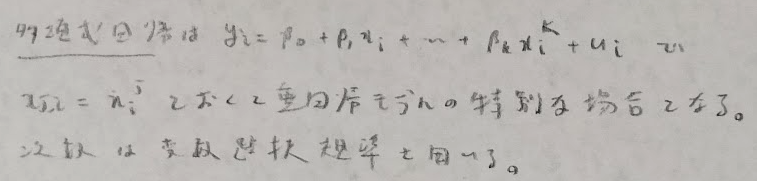 多項式回帰は y_i = β_0 + β_1 x_i + … + β_k x_i^K + u_i で
x_{j,i} = x_i^j とおくと重回帰モデルの特別な場合となる。
次数は変数選択規準を用いる。